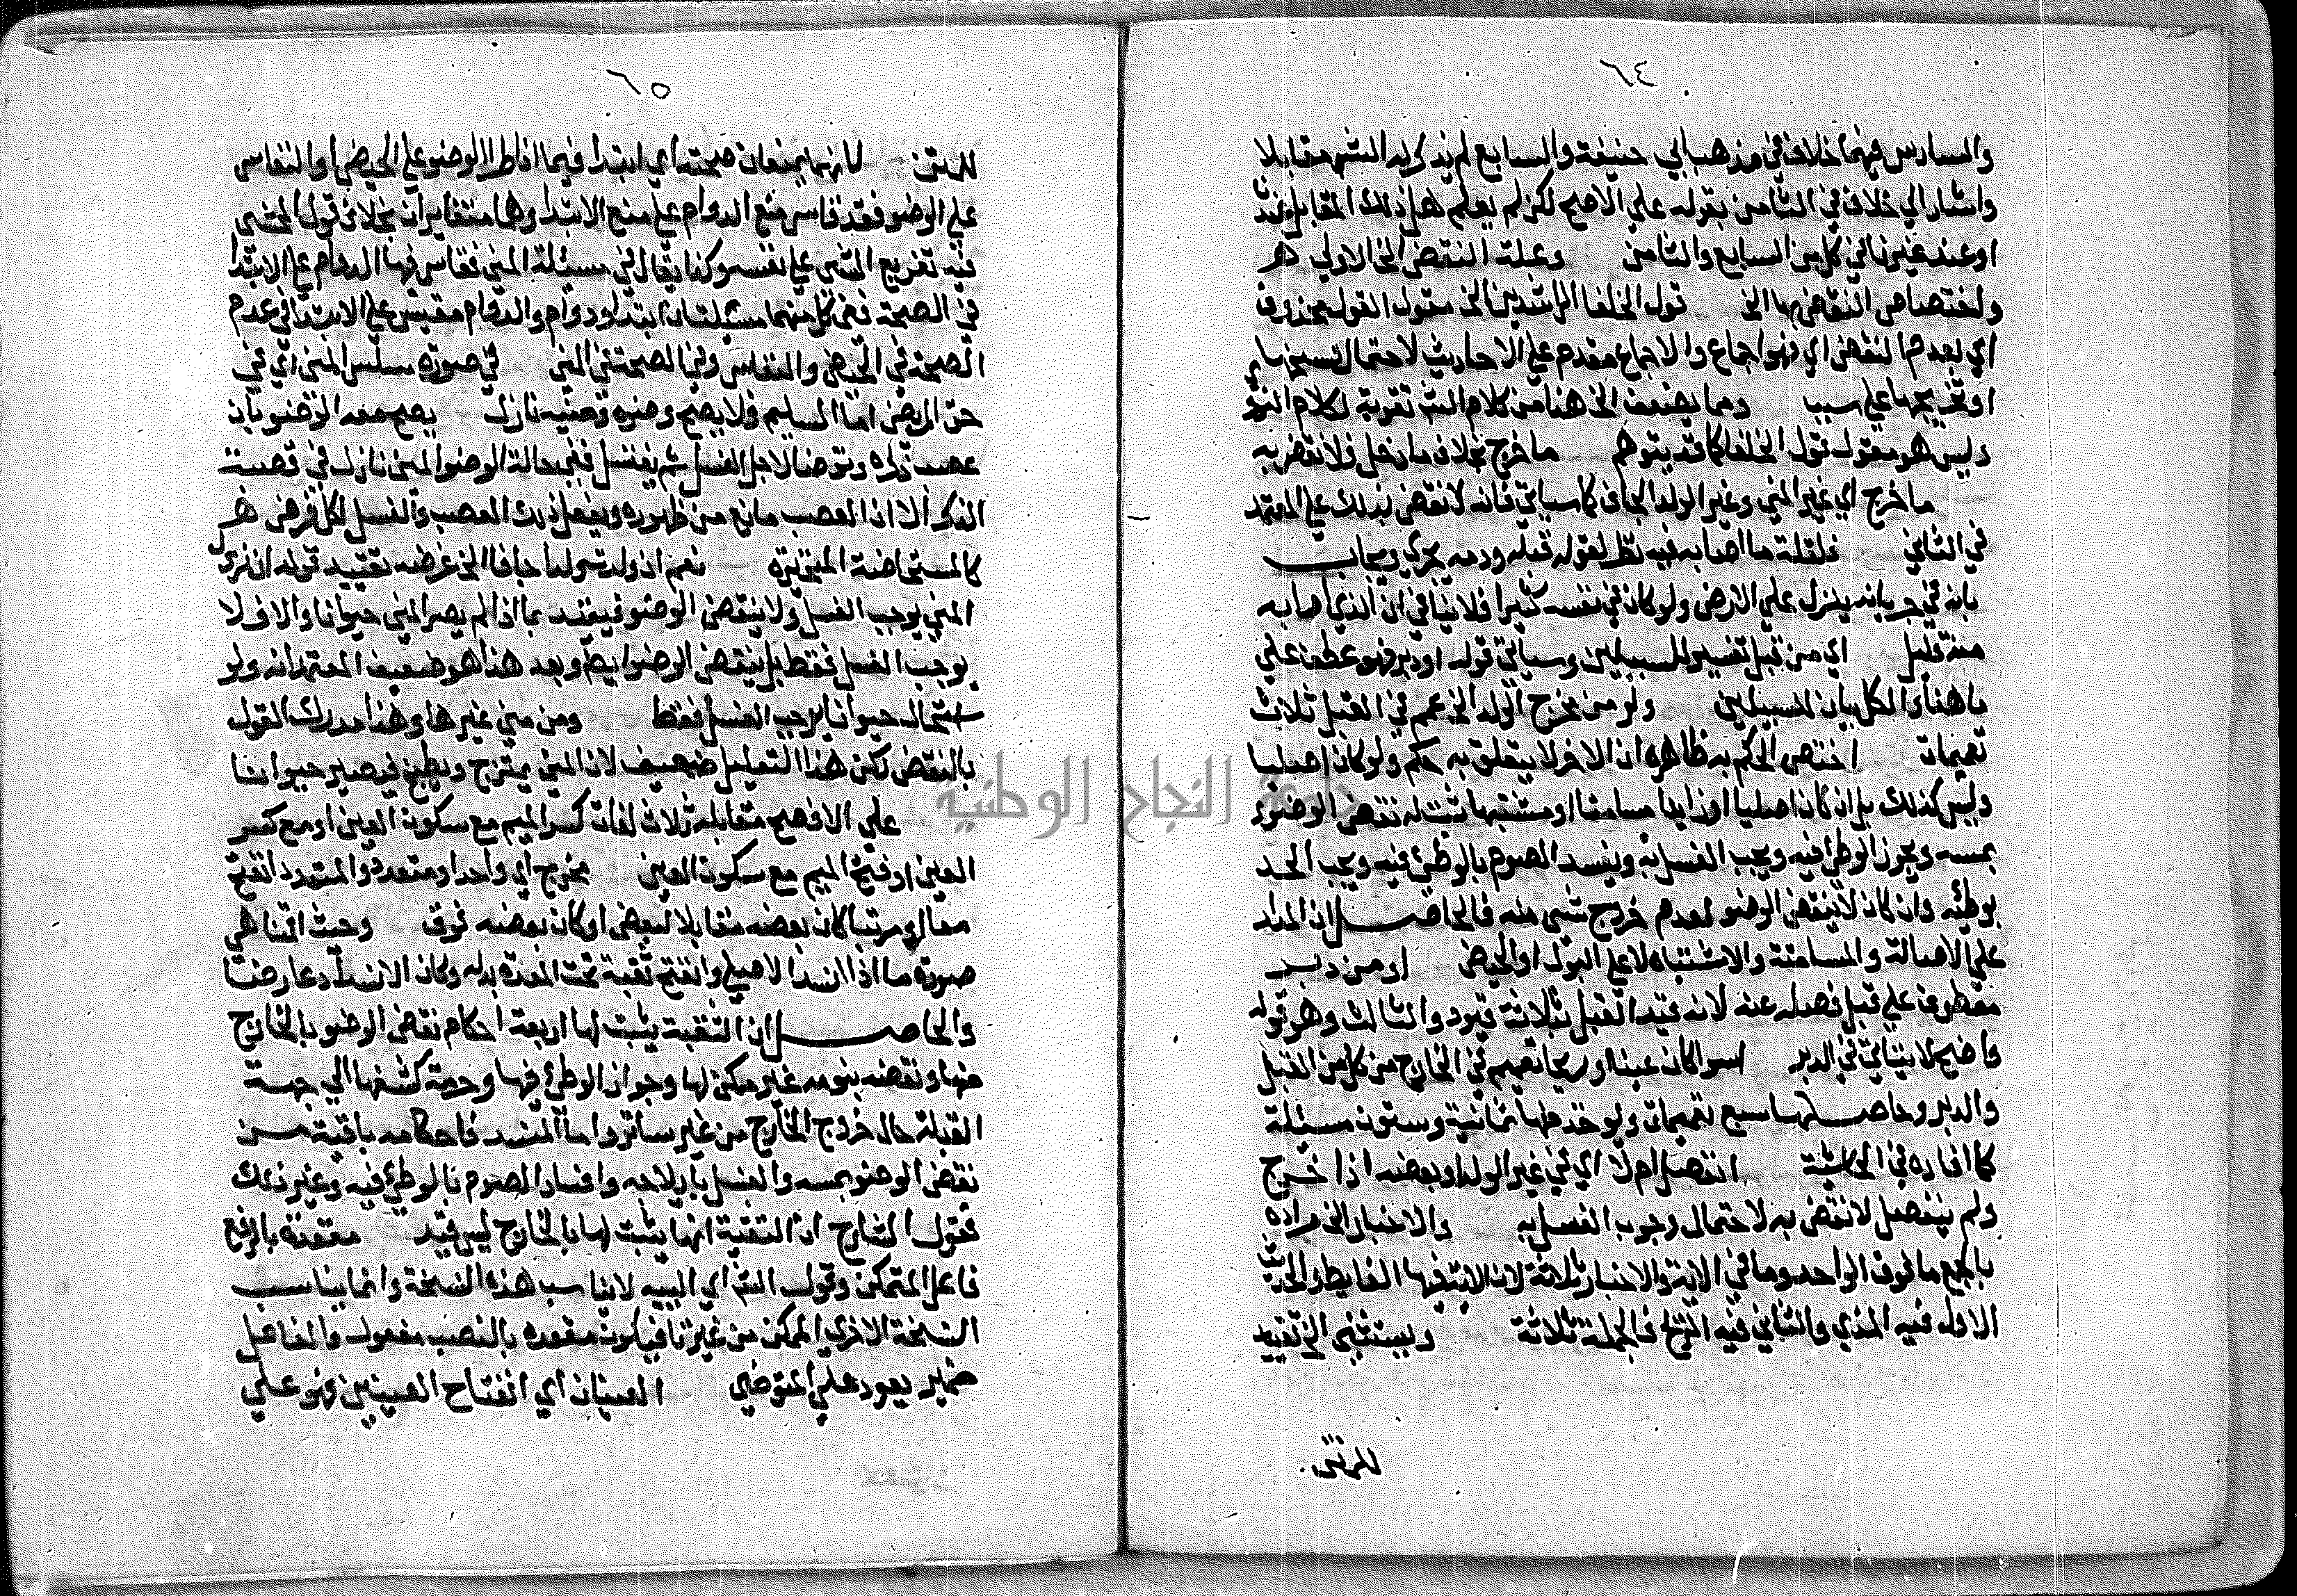 ٦٤
والسادس فيهما خلاف في مذهب ابي حنيفة والسابع لم يذكر له الشم مقابلا
واشار الي خلاف في الثامن بقوله علي الاصح لكن لم يعلم هل ذلك المقابل عندنا
او عند غيرنا في كل من السابع والثامن وعلة النقض الخ الاولي
واختصاص النقض بها الخ قول الخلفا الراشدين الخ مقول القول محذوف
اي بعدم النقض اي فهو اجماع والاجماع مقدم علي الاحاديث لاحتمال نسخها
او تخريجها علي سبب ومما يضعف الخ هنا من كلام الشم تقوية لكلام
وليس هو مقول قول الخلفا كما قد يتوهم ما خرج بخلاف ما دخل فلا نقض به
ما خرج اي غير المني وغير الولد الجاف كما سياتي فانه لا نقض بذلك علي المعتمد
في الثاني فلقلة ما اصابه فيه نظر لقوله قبله ودمه يجري ويجاب
بانه في جريانه ينزل علي الارض ولو كان في نفسه كثيرا فلا ينافي ان الذي اصابه
منه قليل اي من قبل تفسير للسبيلين وسياتي قوله او دبر فهو عطف علي
ما هنا والكل بيان للسبيلين ولو من مخرج الولد الخ عمم في القبل ثلاث
تعميمات اختص الحكم به ظاهره ان الاخر لا يتعلق به حكم ولو كان اصليا
وليس كذلك بل ان كان اصليا او زايدا مسامتا او مشتبها ثبت له نقض الوضوء
بمسه ويجوز الوطئ فيه ويجب الغسل به ويفسد الصوم بالوطئ فيه ويجب الحد
بوطئه وان كان لا ينقض الوضو لعدم خروج شي منه فالحاصل ان المدار
علي الاصالة والمسامتة والاشتباه لا علي البول او الحيض او من دبر
معطوف علي قبل فصله عنه لانه قيد القبل بثلاثة قيود والثالث وهو قوله
واضح لا يتاتي في الدبر سوا كان عينا او ريحا تعميم في الخارج من كل من القبل
والدبر وحاصلها سبع تعميمات ويوخذ منها ثمانية وستون مسئلة
كما افاده في الحاشية انفصل ام لا اي في غير الولد او بعضه اذا خرج
ولم ينفصل لا نقض به لاحتمال وجوب الغسل به والاخبار الخ مراده
بالجمع ما فوق الواحد وما في الاية والاخبار ثلاثة لان الاية فيها الغايط والحديث
الاول فيه المذي والثاني فيه الريح فالجملة ثلاثة ويستثني الخ تقييد
للمتن
٦٥
للمتن لانهما يمنعان صحته اي ابتدا فيما اذا طرا الوضو علي الحيض او النفاس
علي الوضو فقد قاس منع الدوام علي منع الابتدا وهما متغايران بخلاف قول المحشي
فيه تفريع الشي علي نفسه وكذا يقال في مسئلة المني فقاس فيها الدوام علي الابتدا
في الصحة ففي كل منهما مسئلتان ابتدا ودوام والدوام مقيس علي الابتدا في عدم
الصحة في الحيض والنفاس وفي الصحة في المني في صورة سلس المني اي في
حق المريض اما السليم فلا يصح وضوه ومنيه نازل يصح معه الوضو بان
عصب ذكره وتوضا لاجل الغسل ثم يغتسل ففي حالة الوضو المني نازل في قصبة
الذكر الا ان العصب مانع من ظهوره ويفعل ذلك العصب والغسل لكل فرض
كالمستحاضة المتحيرة نعم ان ولدت ولدا جافا الخ غرضه تقييد قوله ان نزول
المني يوجب الغسل ولا ينقض الوضو فيقيد بما اذا لم يصر المني حيوانا والا فلا
يوجب الغسل فقط بل ينقض الوضو ايضا وبعد هذا هو ضعيف المعتمد انه ولو
استحال حيوانا يوجب الغسل فقط ومن مني غيرها وهذا مدرك القول
بالنقض لكن هذا التعليل ضعيف لان المني يمتزج ويطبخ فيصير حيوانا
علي الافصح مقابله ثلاث لغات كسر الميم مع سكون العين او مع كسر
العين او فتح الميم مع سكون العين مخرج اي واحد او متعدد والمتعدد انفتح
معا او مرتبا كان بعضه مقابلا لبعض او كان بعضه فوق وحيث اقمنا هي
صورة ما اذا انسد الاصلي وانفتح ثقبة تحت المعدة بدله وكان الانسداد عارضا
والحاصل ان الثقبة يثبت لها اربعة احكام نقض الوضو بالخارج
منها ونقضه بنومه غير ممكن لها وجواز الوطئ فيها وحرمة كشفها الي جهة
القبلة حال خروج الخارج من غير ساتر واما المنسد فاحكامه باقية من
نقض الوضو بمسه والغسل بايلاجه وافساد الصوم بالوطئ فيه وغير ذلك
فقول الشارح ان الثقبة انما يثبت لها بالخارج ليس بقيد مقعده بالرفع
فاعل المتمكن وقول الشم اي الييه لا يناسب هذه النسخة وانما يناسب
النسخة الاخري الممكن من غير تا فيكون مقعده بالنصب مفعول والفاعل
ضمير يعود علي المتوضي العينان اي انفتاح العينين فهو علي
جامعة النجاح الوطنية